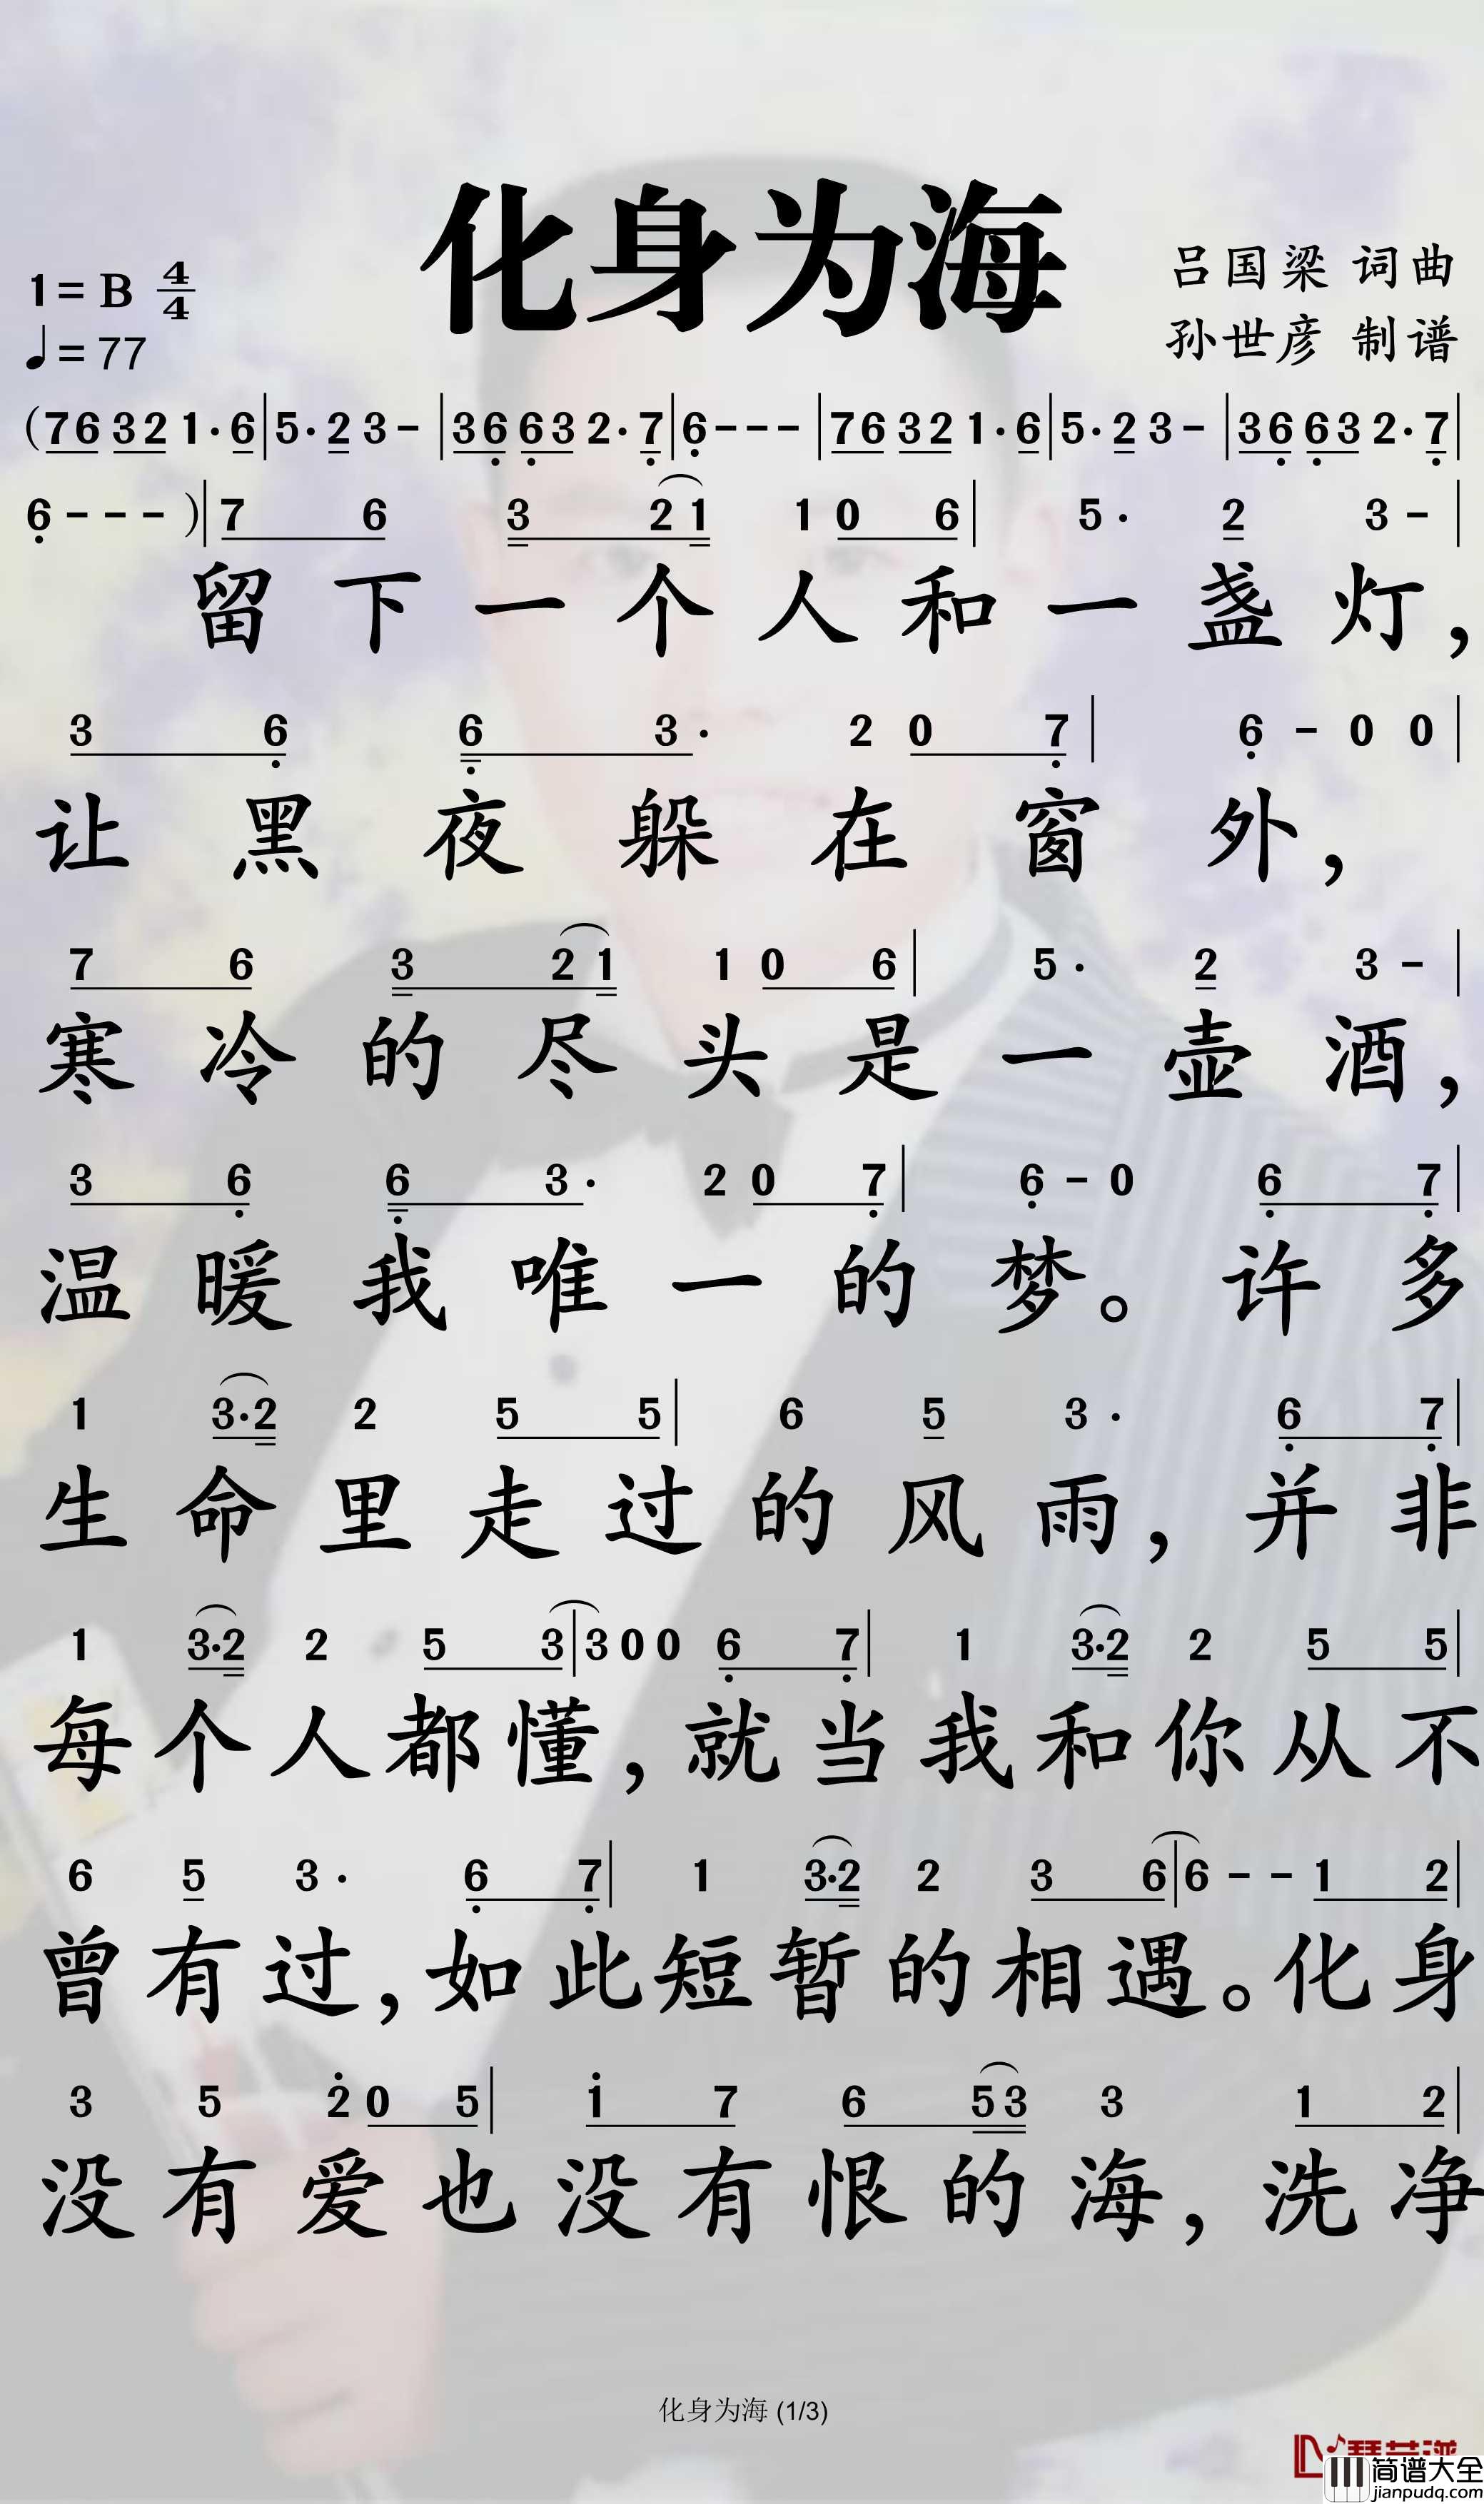 化身为海
吕国梁 词曲
1=B 4/4
孙世彦 制谱
♩=77
(76 32 1·6|5·2 3-|36 63 2·7|6---|76 32 1·6|5·2 3-|36 63 2·7|
6---)|7 6 3 21 1 0 6|5· 2 3-|
留下一个人和一盏灯，
3 6 6 3· 2 0 7|6-0 0|
让黑夜躲在窗外，
7 6 3 21 1 0 6|5· 2 3-|
寒冷的尽头是一壶酒，
3 6 6 3· 2 0 7|6-0 6 7|
温暖我唯一的梦。许多
1 3·2 2 5 5|6 5 3· 6 7|
生命里走过的风雨，并非
1 3·2 2 5 3|3 0 0 6 7|1 3·2 2 5 5|
每个人都懂，就当我和你从不
6 5 3· 6 7|1 3·2 2 3 6|6--1 2|
曾有过，如此短暂的相遇。化身
3 5 2̇ 0 5|1̇ 7 6 53 3 1 2|
没有爱也没有恨的海，洗净
化身为海 (1/3)
简谱大全
jianpudq.com